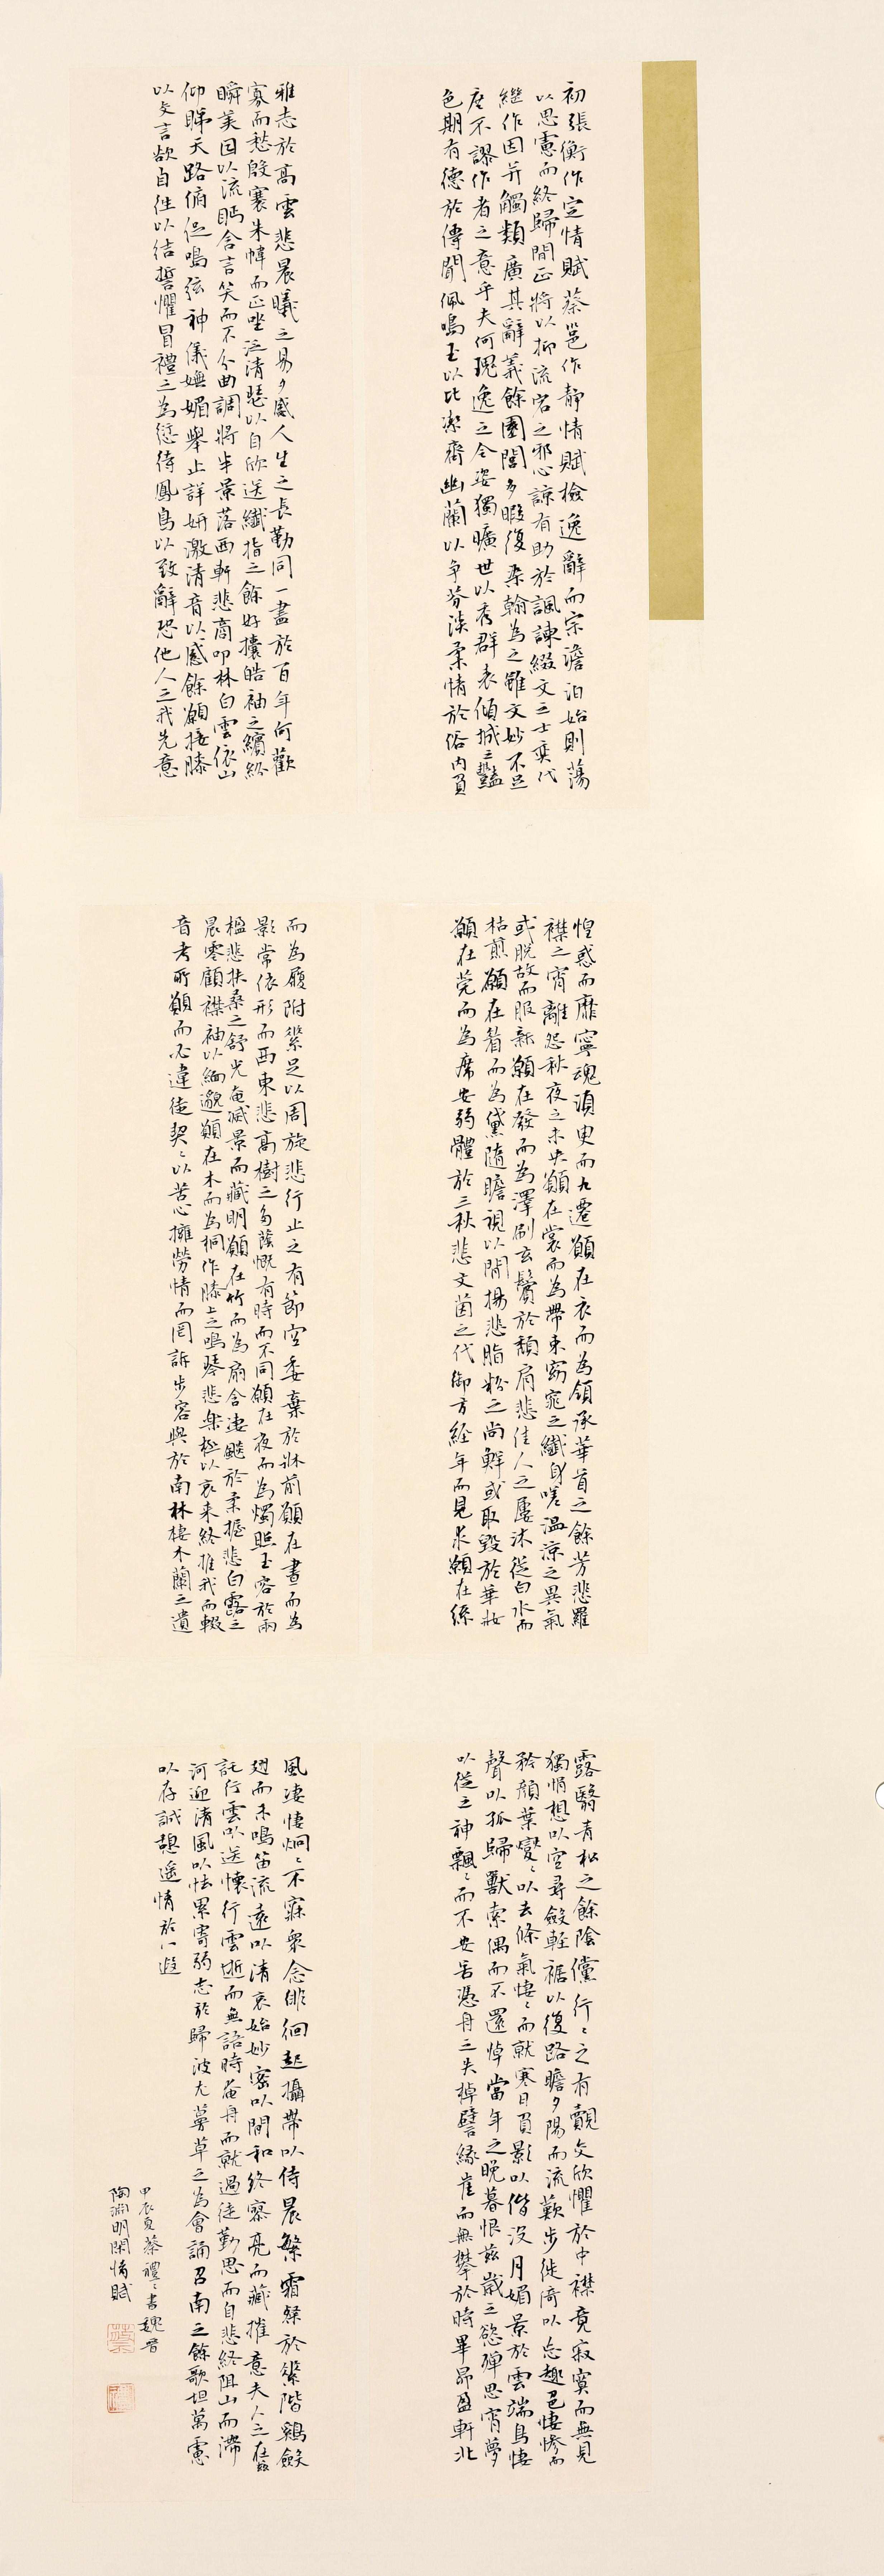 初張衡作定情賦蔡邕作靜情賦檢逸辭而宗澹泊始則蕩
以思慮而終歸閒正將以抑流宕之邪心諒有助於諷諫綴文之士奕代
繼作因并觸類廣其辭義餘園閭多暇復染翰為之雖文妙不足
庶不謬作者之意乎夫何瑰逸之令姿獨曠世以秀群表傾城之豔
色期有德於傳聞佩鳴玉以比潔齊幽蘭以爭芬淡柔情於俗內負
雅志於高雲悲晨曦之易夕感人生之長勤同一盡於百年何歡
寡而愁殷褰朱幃而正坐泛清瑟以自欣送纖指之餘好攘皓袖之繽紛
瞬美目以流眄含言笑而不分曲調將半景落西軒悲商叩林白雲依山
仰睇天路俯促鳴弦神儀嫵媚舉止詳妍激清音以感餘願接膝
以交言欲自往以結誓懼冒禮之為愆待鳳鳥以致辭恐他人之我先意
惶惑而靡寧魂湏臾而九遷願在衣而為領承華首之餘芳悲羅
襟之宵離怨秋夜之未央願在裳而為帶束窈窕之纖身嗟溫涼之異氣
或脫故而服新願在發而為澤刷玄鬢於頹肩悲佳人之屢沐從白水而
枯煎願在眉而為黛隨瞻視以閒揚悲脂粉之尚鮮或取毀於華妝
願在莞而為席安弱體於三秋悲文茵之代御方經年而見求願在絲
而為履附素足以周旋悲行止之有節空委棄於牀前願在晝而為
影常依形而西東悲高樹之多蔭慨有時而不同願在夜而為燭照玉容於兩
楹悲扶桑之舒光奄滅景而藏明願在竹而為扇含淒飈於柔握悲白露之
晨零顧襟袖以緬邈願在木而為桐作膝上之鳴琴悲樂極以哀来終推我而輟
音考所願而必違徒契〻以苦心擁勞情而罔訴步容與於南林棲木蘭之遺
露翳青松之餘陰儻行〻之有覿交欣懼於中襟竟寂寞而無見
獨悁想以空尋斂輕裾以復路瞻夕陽而流歎步徙倚以忘趣色悽慘而
矜顏葉燮〻以去條氣悽〻而就寒日負影以偕沒月媚景於雲端鳥悽
聲以孤歸獸索偶而不還悼當年之晚暮恨茲歲之慾殫思宵夢
以從之神飄〻而不安若憑舟之失棹譬緣崖而無攀於時畢昴盈軒北
風淒悽炯〻不寐衆念徘徊起攝帶以侍晨繁霜粲於素階鷄斂
翅而未鳴笛流遠以清哀始妙密以閒和終寥亮而藏摧意夫人之在茲
託行雲以送懷行雲逝而無語時奄冉而就過徒勤思而自悲終阻山而滯
河迎清風以怯累寄弱志於歸波尤蔓草之為會誦召南之餘歌坦萬慮
以存誠憩遙情於八遐
甲辰夏蔡禮〻書魏晉
陶淵明閑情賦